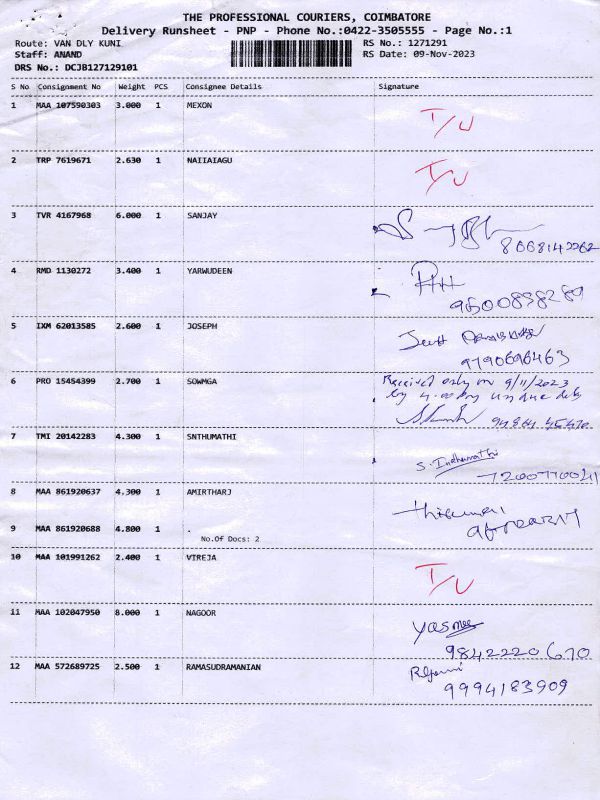 THE PROFESSIONAL COURIERS, COIMBATORE
Delivery Runsheet - PNP - Phone No.:0422-3505555 - Page No.:1
Route: VAN DLY KUNI RS No.: 1271291
Staff: ANAND RS Date: 09-Nov-2023
DRS No.: DCJB127129101
S No Consignment No Weight PCS Consignee Details Signature
1 MAA 107590303 3.000 1 MEXON
T/U
2 TRP 7619671 2.630 1 NAIIAIAGU
T/U
3 TVR 4167968 6.000 1 SANJAY
4 RMD 1130272 3.400 1 YARWUDEEN
9500898289
5 IXM 62013585 2.600 1 JOSEPH
9790696463
6 PRO 15454399 2.700 1 SOWMGA
Received only on 9/11/2023
by
7 TMI 20142283 4.300 1 SNTHUMATHI
S. Indhumathi
8 MAA 861920637 4.300 1 AMIRTHARJ
9 MAA 861920688 4.800 1 .
No.Of Docs: 2
10 MAA 101991262 2.400 1 VIREJA
T/U
11 MAA 102047950 8.000 1 NAGOOR
9842220670
12 MAA 572689725 2.500 1 RAMASUDRAMANIAN
9994183909